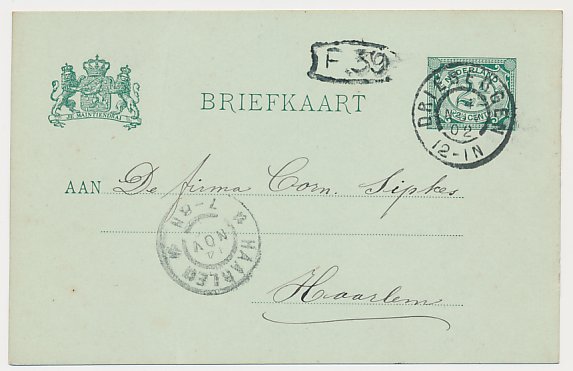 F 39
JE MAINTIENDRAI
BRIEFKAART
NEDERLAND
2½ CENT
NOV
02
12-1N
AAN De firma Corn. Sipkes
HAARLEM 4
14
NOV
7-8N
Haarlem